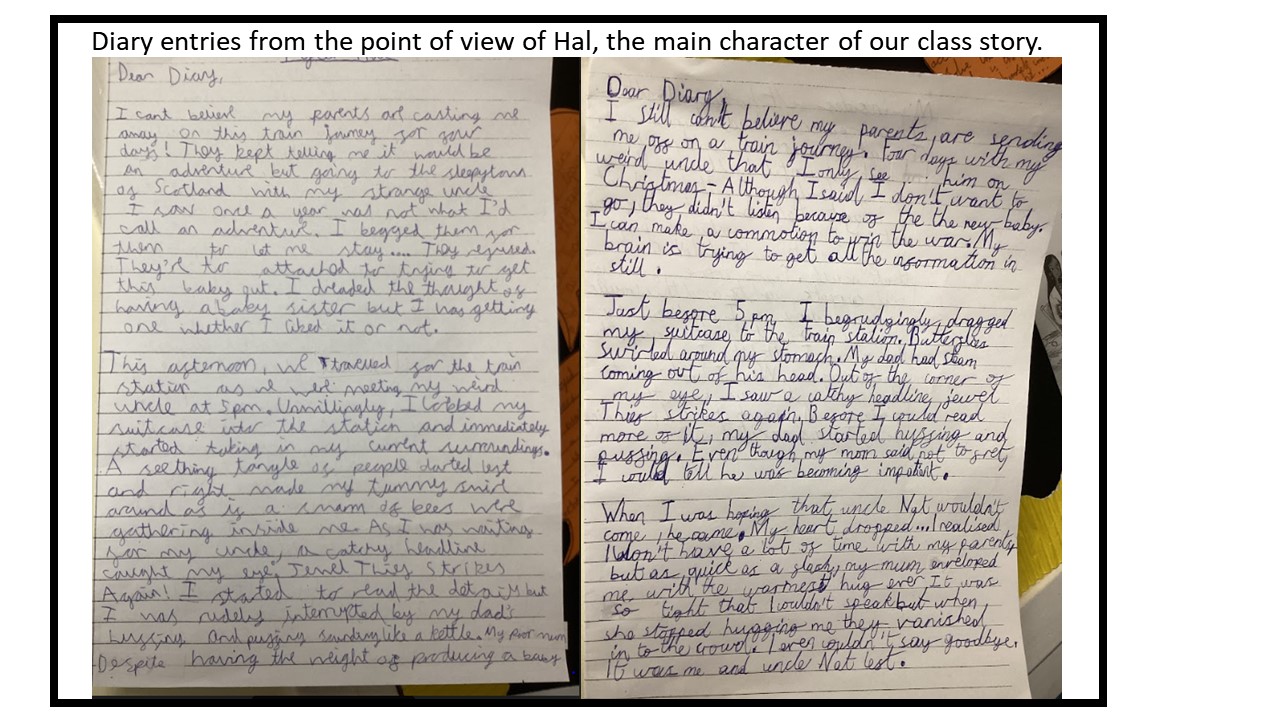 Diary entries from the point of view of Hal, the main character of our class story.
Dear Diary,
I cant believe my parents are casting me
away on this train journey for four
days! They kept telling me it would be
an adventure but going to the sleepytown
of Scotland with my strange uncle
I saw once a year was not what I'd
call an adventure. I begged them for
them to let me stay.... They refused.
They're to attached to trying to get
this baby out. I dreaded the thought of
having a baby sister but I was getting
one whether I liked it or not.
This afternoon, we travelled for the train
station as we were meeting my weird
uncle at 5pm. Unwillingly, I lobbed my
suitcase into the station and immediately
started taking in my current surroundings.
A seething tangle of people darted left
and right made my tummy swirl
around as if a swarm of bees were
gathering inside me. As I was waiting
for my uncle, a catchy headline
caught my eye, Jewel Thief Strikes
Again! I started to read the details but
I was rudely interrupted by my dad's
huffing and puffing sounding like a kettle. My poor mum
Despite having the weight of producing a baby
Dear Diary,
I still can't believe my parents, are sending
me off on a train journey. Four days with my
weird uncle that I only see him on
Christmas - Although I said I don't want to
go, they didn't listen because of the the new baby.
I can make a commotion to win the war. My
brain is trying to get all the information in
still.
Just before 5pm, I begrudgingly dragged
my suitcase to the train station. Butterflies
swirled around my stomach. My dad had steam
coming out of his head. Out of the corner of
my eye, I saw a catchy headline, jewel
Thief strikes again. Before I could read
more of it, my dad started huffing and
puffing. Even though, my mom said not to fret,
I could tell he was becoming impatient.
When I was hoping that, uncle Nat wouldn't
come, he came. My heart dropped... I realised
I don't have a lot of time with my parents
but as quick as a flash, my mum enveloped
me with the warmest hug ever It was
so tight that I couldn't speak but when,
she stopped hugging me they vanished
in to the crowd. I even couldn't say goodbye.
It was me and uncle Nat left.